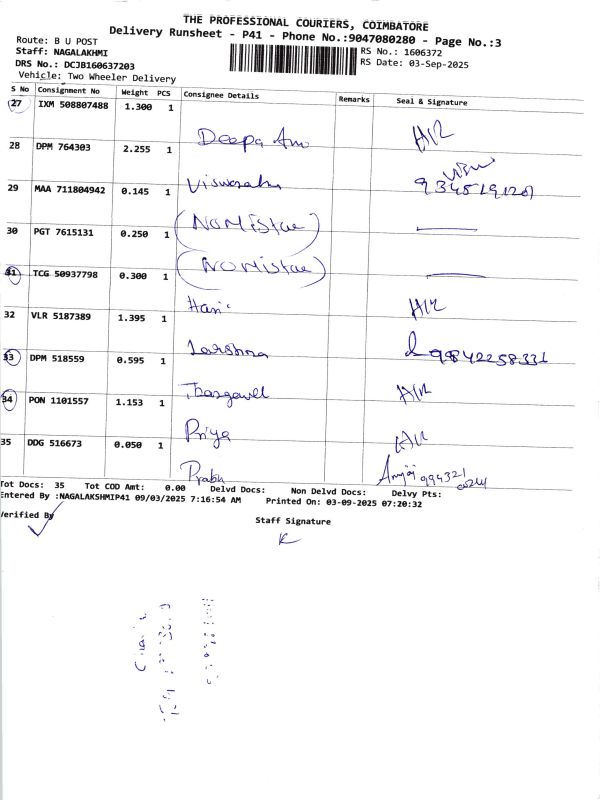 THE PROFESSIONAL COURIERS, COIMBATORE
Delivery Runsheet - P41 - Phone No.:9047080280 - Page No.:3
Route: B U POST
Staff: NAGALAKHMI
RS No.: 1606372
DRS No.: DCJB160637203
RS Date: 03-Sep-2025
Vehicle: Two Wheeler Delivery
S No Consignment No Weight PCS Consignee Details Remarks Seal & Signature
27 IXM 508807488 1.300 1
Deepa
28 DPM 764303 2.255 1
29 MAA 711804942 0.145 1
30 PGT 7615131 0.250 1
31 TCG 50937798 0.300 1
Hari
32 VLR 5187389 1.395 1
9842258331
33 DPM 518559 0.595 1
34 PON 1101557 1.153 1
Priya
35 DDG 516673 0.050 1
Prabu
Tot Docs: 35 Tot COD Amt: 0.00 Delvd Docs: Non Delvd Docs: Delvy Pts:
Entered By :NAGALAKSHMIP41 09/03/2025 7:16:54 AM Printed On: 03-09-2025 07:20:32
Verified By
Staff Signature